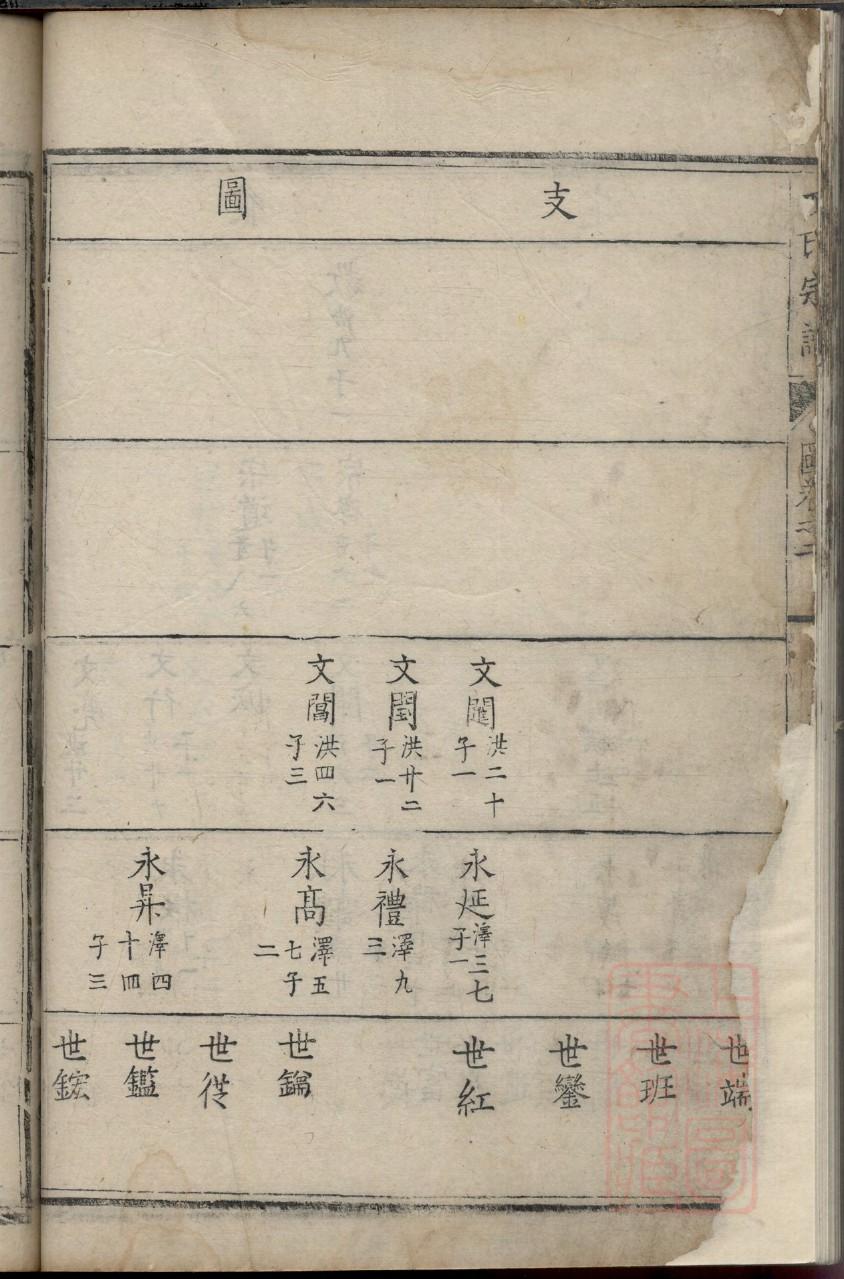 支圖
氏宗譜
圖卷之二
文闓 洪二十 子一
文閨 洪廿二 子一
文閶 洪四六 子三
永延 澤三七 子一
永禮 澤九三
永高 澤五七 子二
永昇 澤四十四 子三
世端
世班
世鑾
世紅
世鑐
世從
世鑑
世鋐